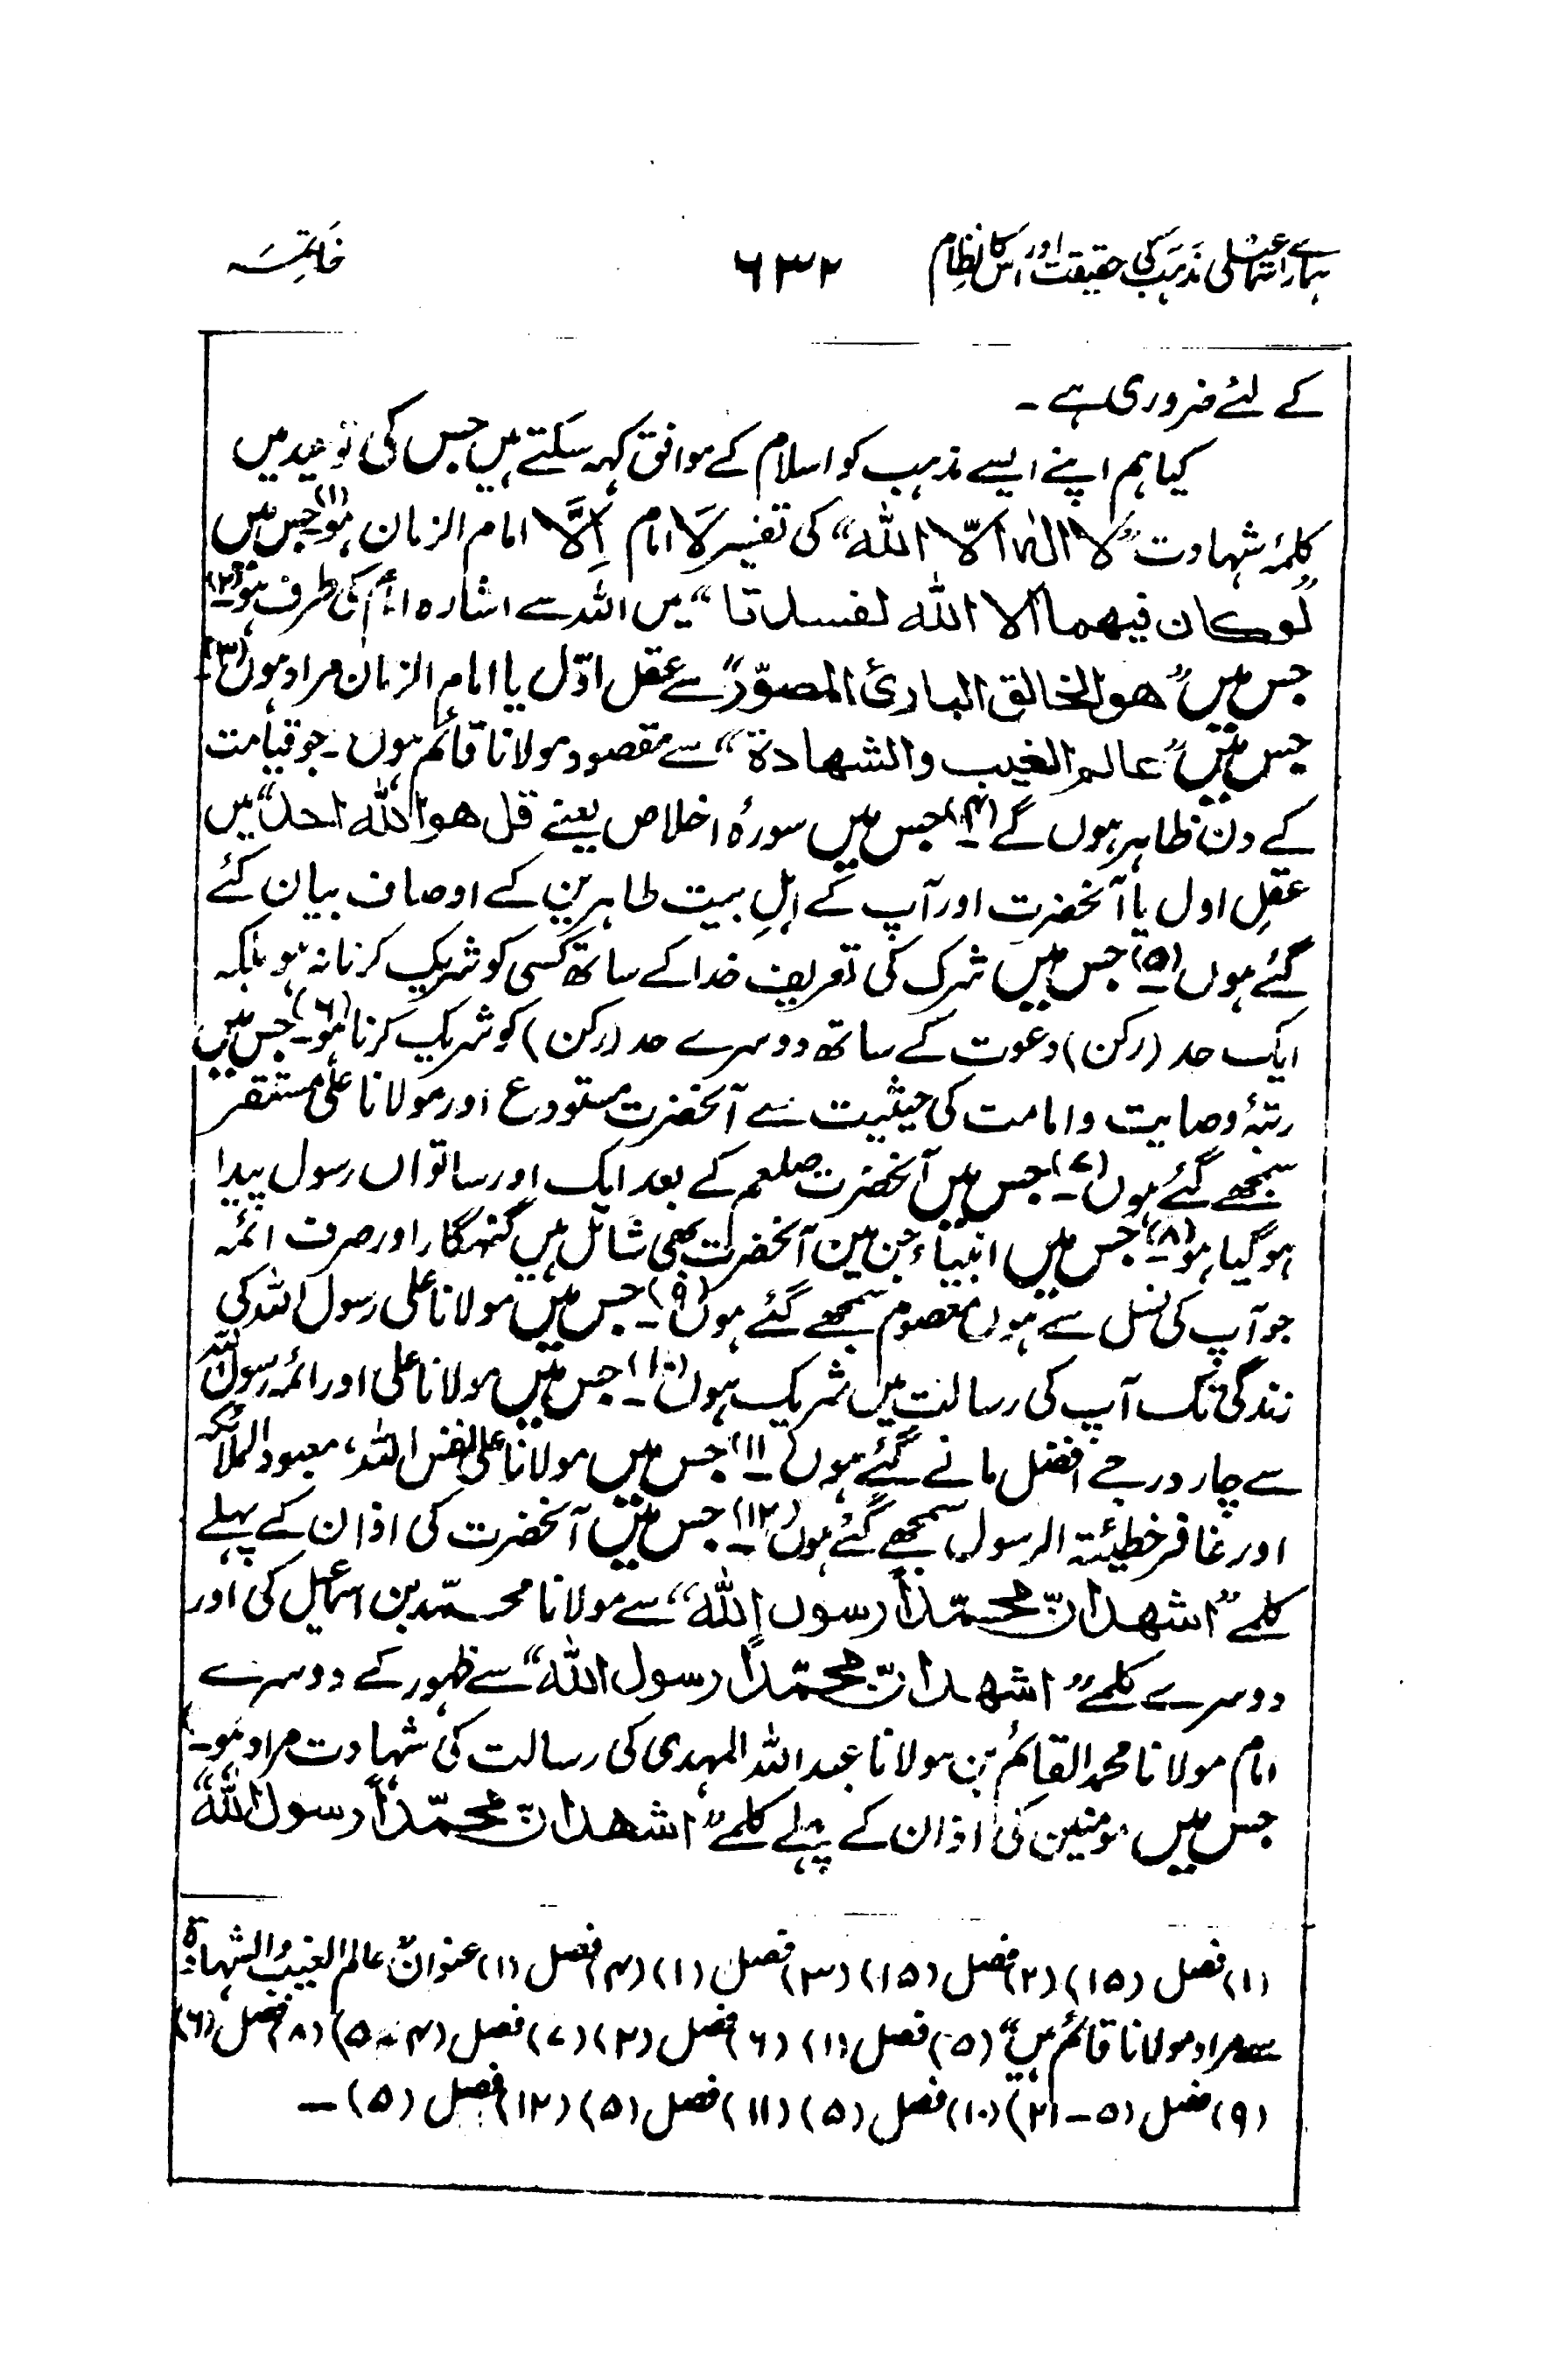 ہمارے اسماعیلی مذہب کی حقیقت اور اس کا نظام ۶۳۲ خاتمہ
کے لئے ضروری ہے ۔
کیا ہم اپنے ایسے مذہب کو اسلام کے موافق کہہ سکتے ہیں جس کی توحید میں
کلمۂ شہادت ”لا الٰہ الّا اللہ“ کی تفسیر لَا امام اِلَّا امام الزمان ہو(۱)۔ جس میں
”لوکان فیھما آلا اللہ لفسدتا“ میں اللہ سے اشارہ امام کی طرف ہو(۲)۔
جس میں ”ھو الخالق الباریٔ المصوّر“ سے عقل اوّل یا امام الزمان مراد ہوں(۳)۔
جس میں ”عالم الغیب والشھادۃ“ سے مقصود مولانا قائم ہوں۔ جو قیامت
کے دن ظاہر ہوں گے(۴)۔ جس میں سورۂ اخلاص یعنے قل ھو اللہ احد“ میں
عقلِ اول یا آنحضرت اور آپ کے اہلِ بیت طاہرین کے اوصاف بیان کئے
گئے ہوں(۵)۔ جس میں شرک کی تعریف خدا کے ساتھ کسی کو شریک کرنا نہ ہو بلکہ
ایک حد (رکن) دعوت کے ساتھ دوسرے حد (رکن) کو شریک کرنا ہو(۶)۔ جس میں
رتبۂ وصایت و امامت کی حیثیت سے آنحضرت مستودع اور مولانا علی مستقر
سمجھے گئے ہوں(۷)۔ جس میں آنحضرت صلعم کے بعد ایک اور ساتواں رسول پیدا
ہو گیا ہو(۸)۔ جس میں انبیاء جن میں آنحضرت بھی شامل ہیں گنہگار اور صرف ائمہ
جو آپ کی نسل سے ہوں معصوم سمجھے گئے ہوں(۹)۔ جس میں مولانا علی رسول اللہ کی
زندگی تک آپ کی رسالت میں شریک ہوں(۱۰)۔ جس میں مولانا علی اور ائمہ رسول اللہ
سے چار درجے افضل مانے گئے ہوں(۱۱)۔ جس میں مولانا علی نفس اللہ، معبود الملائکہ
اور غافر خطیئتہ الرسول سمجھے گئے ہوں(۱۲)۔ جس میں آنحضرت کی اذان کے پہلے
کلمے ”اشھد انّ محمّداً رسول اللہ“ سے مولانا محمّد بن اسماعیل کی اور
دوسرے کلمے ”اشھد انّ محمّداً رسول اللہ“ سے ظہور کے دوسرے
امام مولانا محمد القائم بن مولانا عبد اللہ المہدی کی رسالت کی شہادت مراد ہو۔
جس میں مومنین کی اذان کے پہلے کلمے ”اشھد انّ محمّداً رسول اللہ“
(۱) فصل (۱۵) (۲) فصل (۱۵) (۳) فصل (۱) (۴) فصل (۱) عنوان ”عالم الغیب والشہادۃ
سے مراد مولانا قائم ہیں“ (۵) فصل (۱) (۶) فصل (۲) (۷) فصل (۴ ۔ ۵) (۸) فصل (۶)
(۹) فصل (۵ – ۲) (۱۰) فصل (۵) (۱۱) فصل (۵) (۱۲) فصل (۵) ۔